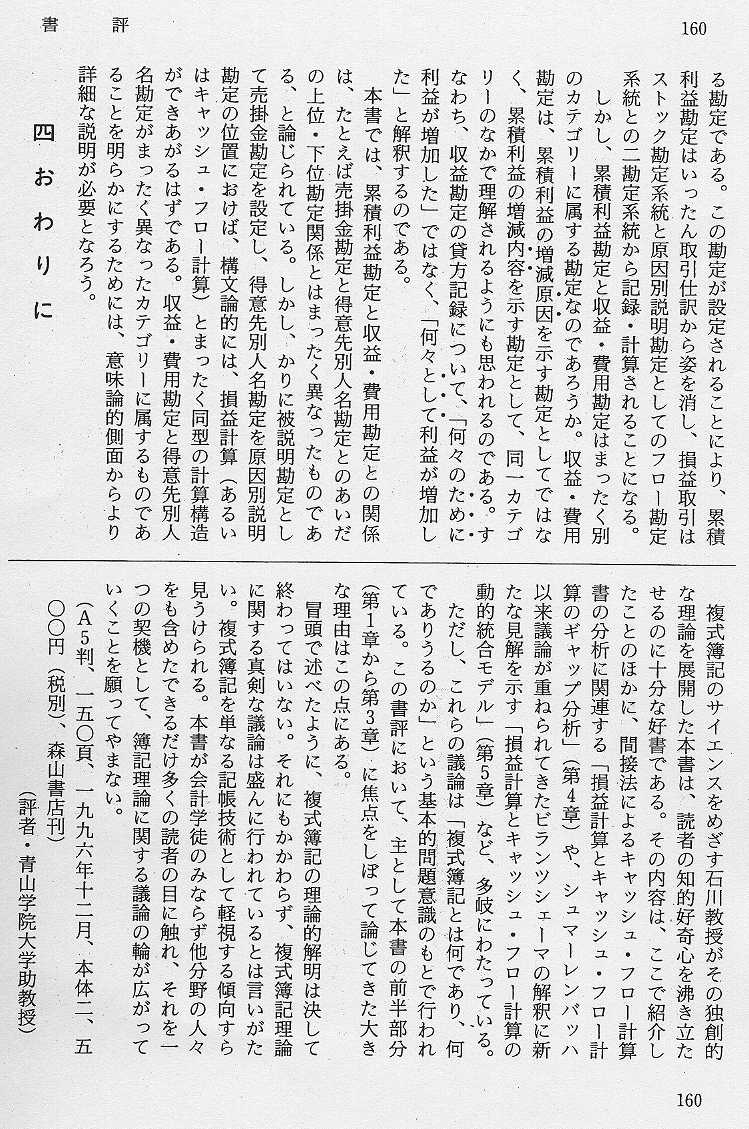 書評
160
る勘定である。この勘定が設定されることにより、累積
利益勘定はいったん取引仕訳から姿を消し、損益取引は
ストック勘定系統と原因別説明勘定としてのフロー勘定
系統との二勘定系統から記録・計算されることになる。
しかし、累積利益勘定と収益・費用勘定はまったく別
のカテゴリーに属する勘定なのであろうか。収益・費用
勘定は、累積利益の増減原因を示す勘定としてではな
く、累積利益の増減内容を示す勘定として、同一カテゴ
リーのなかで理解されるようにも思われるのである。す
なわち、収益勘定の貸方記録について、「何々のために
利益が増加した」ではなく、「何々として利益が増加し
た」と解釈するのである。
本書では、累積利益勘定と収益・費用勘定との関係
は、たとえば売掛金勘定と得意先別人名勘定とのあいだ
の上位・下位勘定関係とはまったく異なったものであ
る、と論じられている。しかし、かりに被説明勘定とし
て売掛金勘定を設定し、得意先別人名勘定を原因別説明
勘定の位置におけば、構文論的には、損益計算（あるい
はキャッシュ・フロー計算）とまったく同型の計算構造
ができあがるはずである。収益・費用勘定と得意先別人
名勘定がまったく異なったカテゴリーに属するものであ
ることを明らかにするためには、意味論的側面からより
詳細な説明が必要となろう。
四 おわりに
複式簿記のサイエンスをめざす石川教授がその独創的
な理論を展開した本書は、読者の知的好奇心を沸き立た
せるのに十分な好書である。その内容は、ここで紹介し
たことのほかに、間接法によるキャッシュ・フロー計算
書の分析に関連する「損益計算とキャッシュ・フロー計
算のギャップ分析」（第4章）や、シュマーレンバッハ
以来議論が重ねられてきたビランツシェーマの解釈に新
たな見解を示す「損益計算とキャッシュ・フロー計算の
動的統合モデル」（第5章）など、多岐にわたっている。
ただし、これらの議論は「複式簿記とは何であり、何
でありうるのか」という基本的問題意識のもとで行われ
ている。この書評において、主として本書の前半部分
（第1章から第3章）に焦点をしぼって論じてきた大き
な理由はこの点にある。
冒頭で述べたように、複式簿記の理論的解明は決して
終わってはいない。それにもかかわらず、複式簿記理論
に関する真剣な議論は盛んに行われているとは言いがた
い。複式簿記を単なる記帳技術として軽視する傾向すら
見うけられる。本書が会計学徒のみならず他分野の人々
をも含めたできるだけ多くの読者の目に触れ、それを一
つの契機として、簿記理論に関する議論の輪が広がって
いくことを願ってやまない。
（A5判、一五〇頁、一九九六年十二月、本体二、五
〇〇円（税別）、森山書店刊）
（評者・青山学院大学助教授）
160